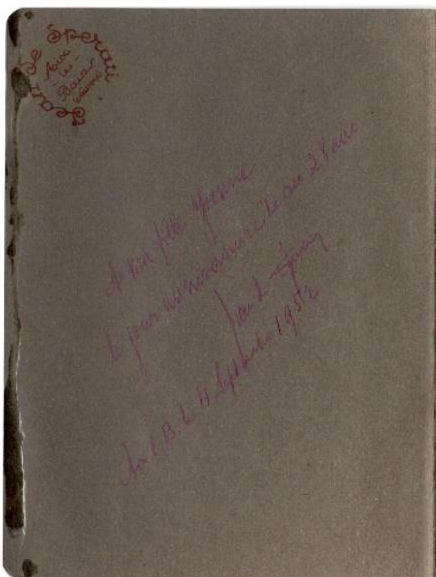 Jean de Sperati
Aix
les
Bains
A ma fille Yvonne
le jour anniversaire de ses 2
Jean de Sperati
Aix l B. le 4 Septembre 1952